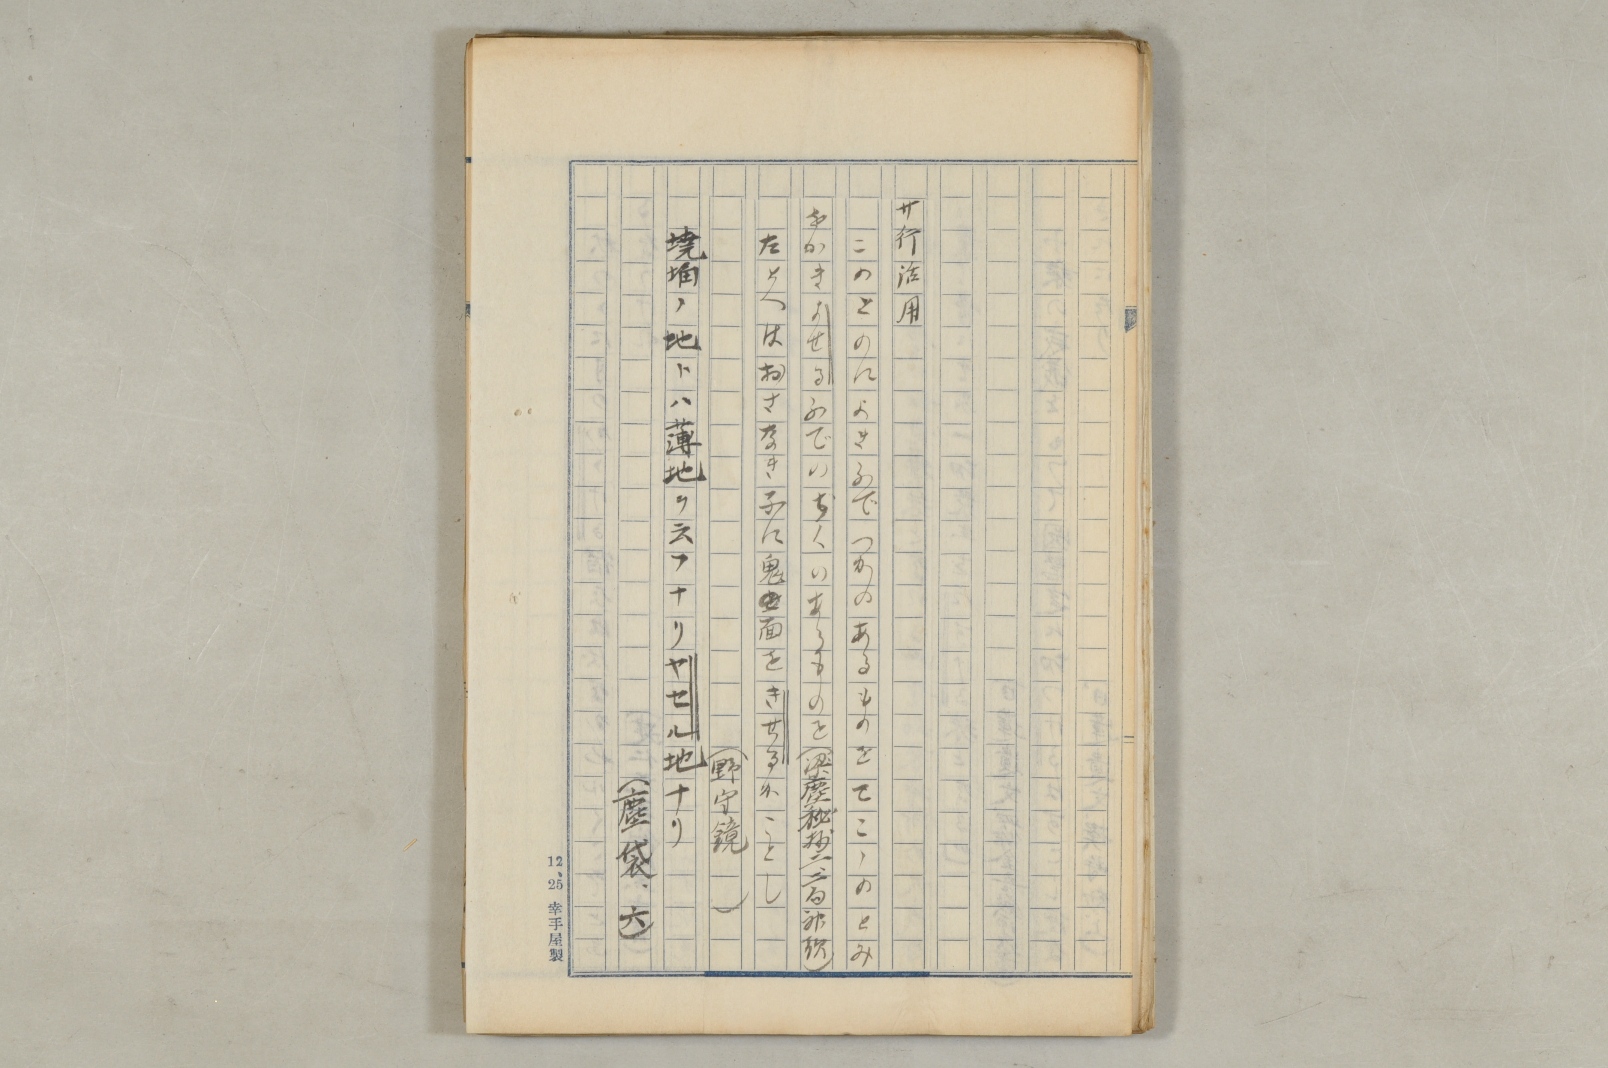 サ行活用
このとのによきふでつかのあるものをてこゝのとみ
をかきよせるふでのぢくのあるものを(梁塵秘抄二、二句神歌)
たとへはおさなき子に鬼面をきせるかことし
(野守鏡)
墝埆ノ地トハ薄地ヲ云フナリヤセル地ナリ
(塵袋、六)
12、25 幸手屋製